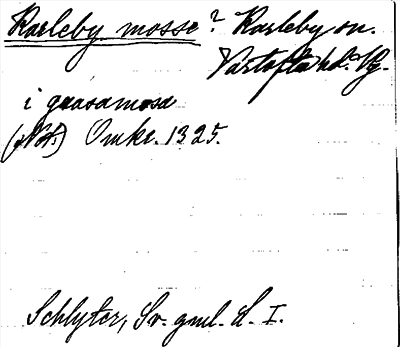 Karleby mosse? Karleby sn.
Vartofta hd. Vg.
i guasamosa
(Not.) Omkr. 1325.
Schlyter, Sv. gml. L. I.